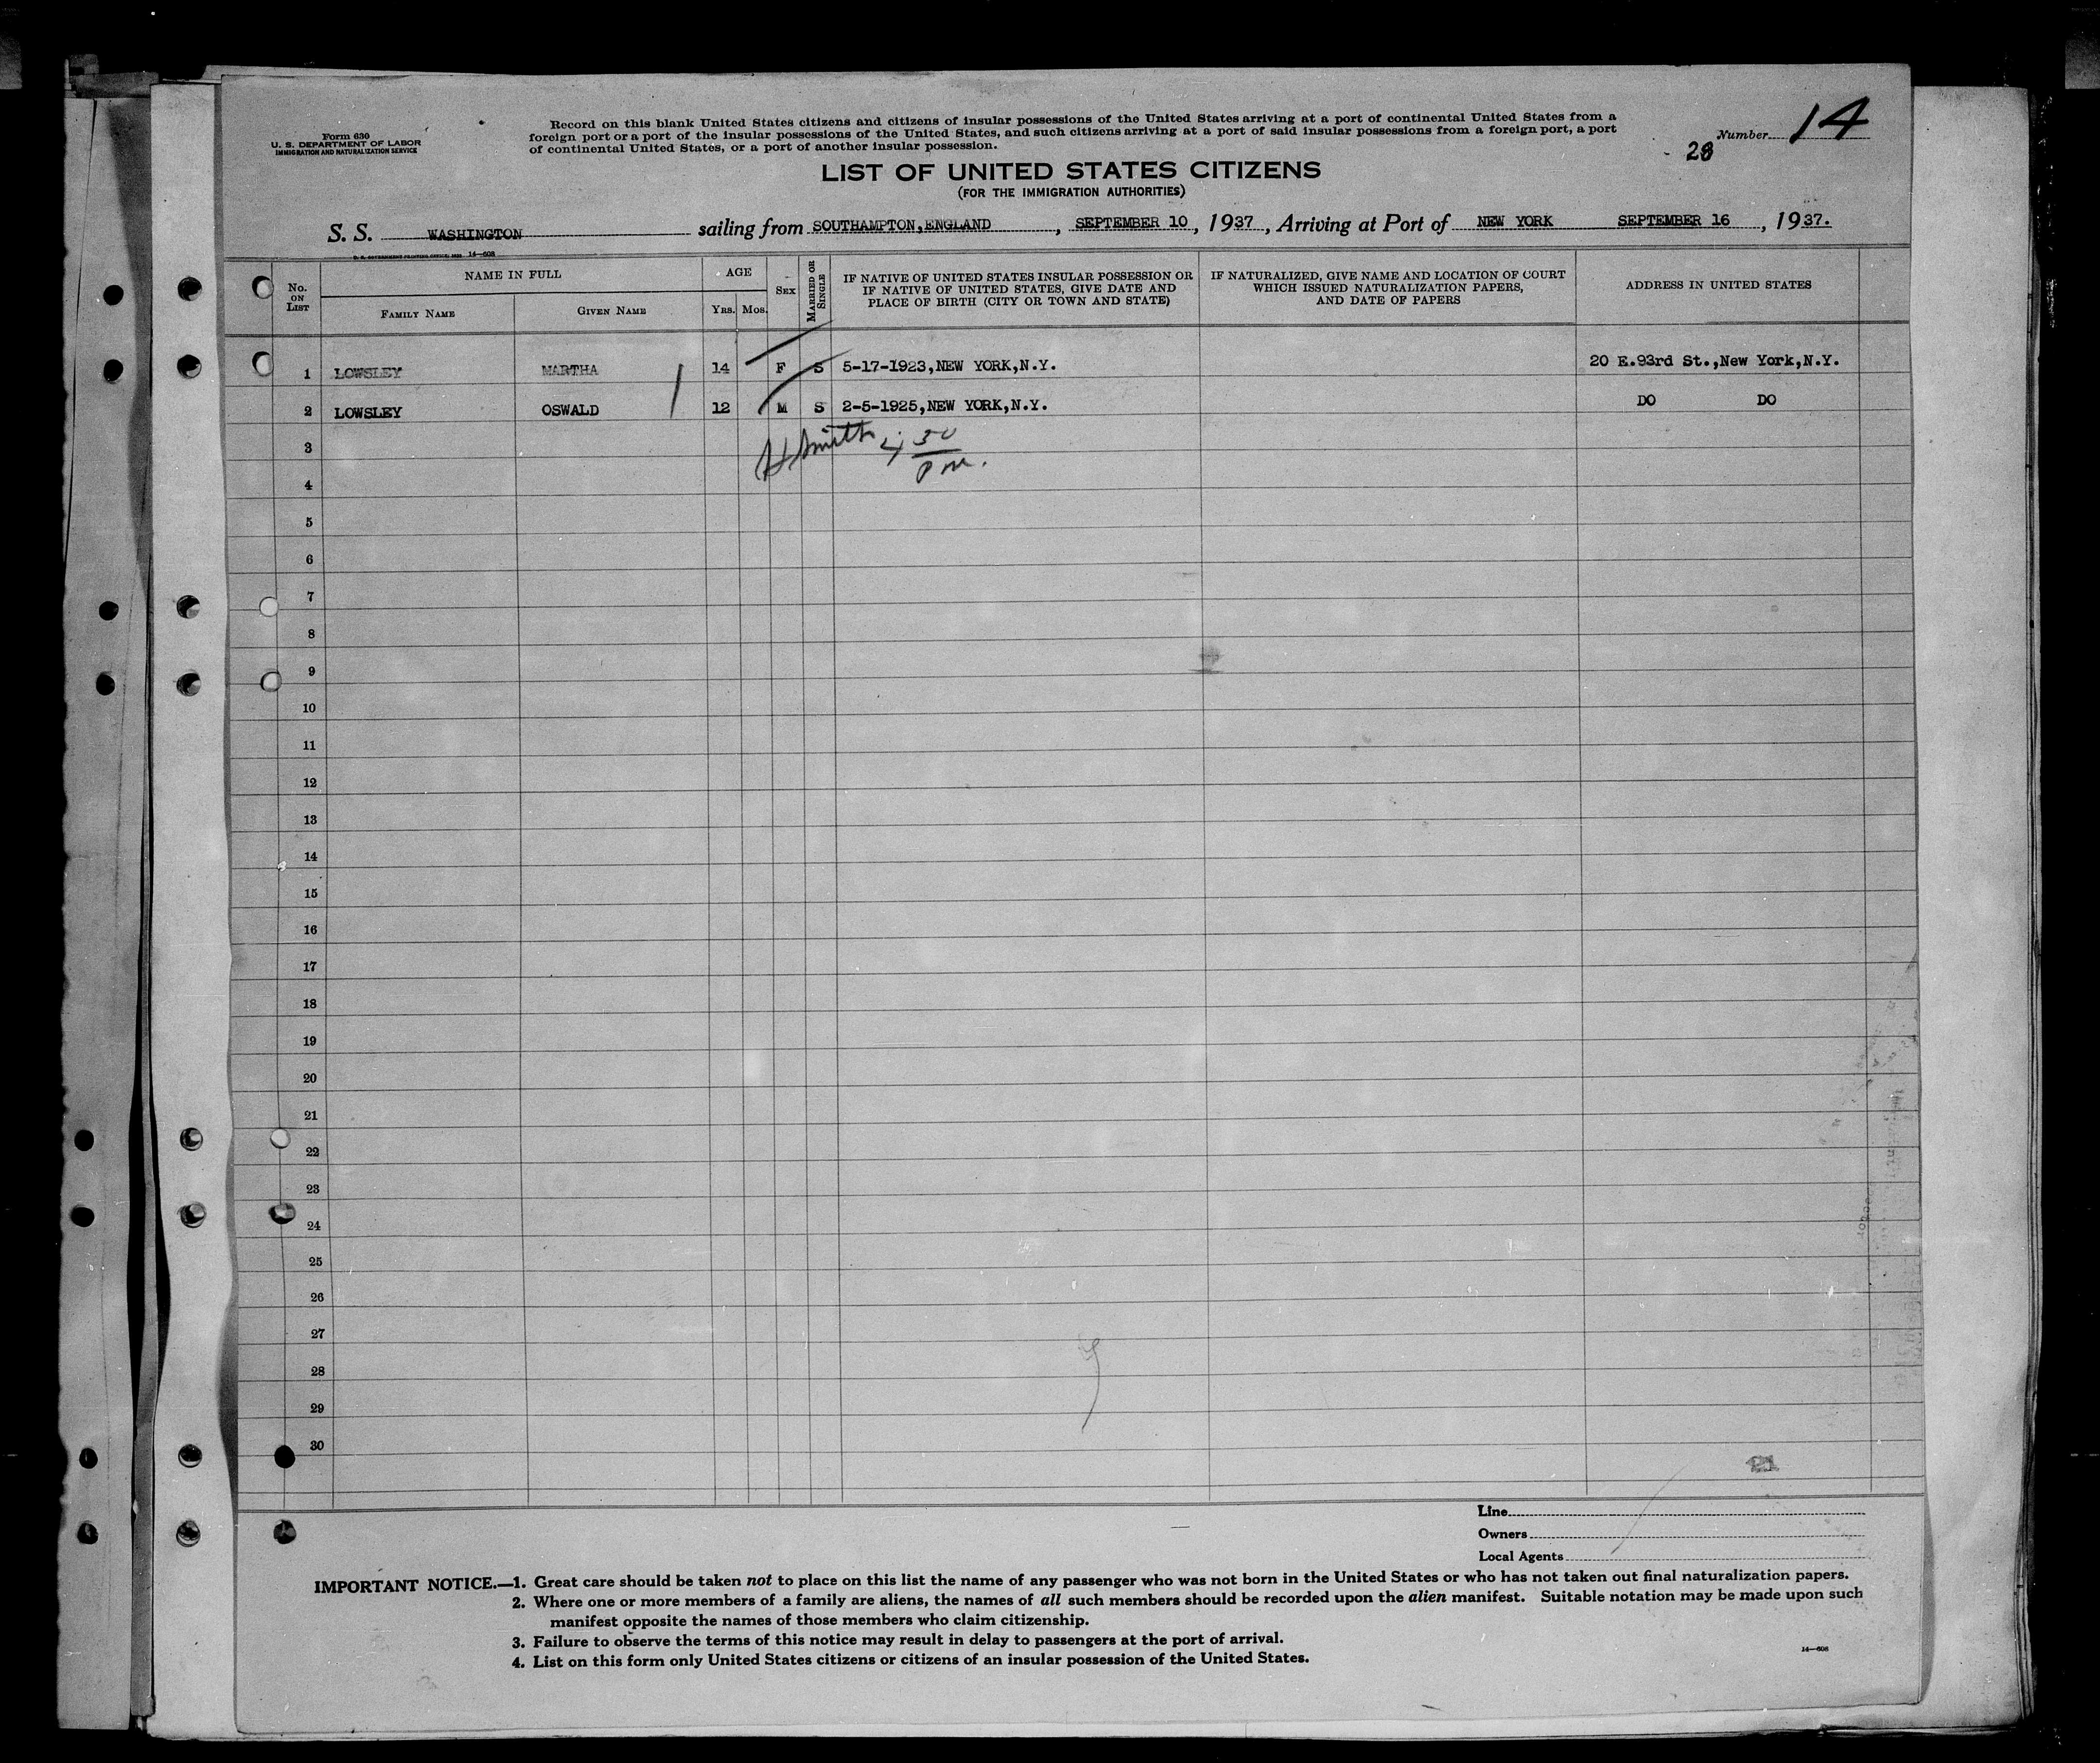 Form 630
U. S. DEPARTMENT OF LABOR
IMMIGRATION AND NATURALIZATION SERVICE
Record on this blank United States citizens and citizens of insular possessions of the United States arriving at a port of continental United States from a
foreign port or a port of the insular possessions of the United States, and such citizens arriving at a port of said insular possessions from a foreign port, a port
of continental United States, or a port of another insular possession.
Number 14
28
LIST OF UNITED STATES CITIZENS
(FOR THE IMMIGRATION AUTHORITIES)
S. S. WASHINGTON sailing from SOUTHAMPTON, ENGLAND, SEPTEMBER 10, 1937, Arriving at Port of NEW YORK SEPTEMBER 16, 1937.
U. S. GOVERNMENT PRINTING OFFICE 14—608
No. ON LIST
NAME IN FULL
FAMILY NAME
GIVEN NAME
AGE
YRS. MOS.
SEX
MARRIED OR SINGLE
IF NATIVE OF UNITED STATES INSULAR POSSESSION OR
IF NATIVE OF UNITED STATES, GIVE DATE AND
PLACE OF BIRTH (CITY OR TOWN AND STATE)
IF NATURALIZED, GIVE NAME AND LOCATION OF COURT
WHICH ISSUED NATURALIZATION PAPERS,
AND DATE OF PAPERS
ADDRESS IN UNITED STATES
1 LOWSLEY MARTHA 14 F S 5-17-1923, NEW YORK, N.Y. 20 E.93rd St., New York, N.Y.
2 LOWSLEY OSWALD 12 M S 2-5-1925, NEW YORK, N.Y. DO DO
3
Smith 30
pm.
4
5
6
7
8
9
10
11
12
13
14
15
16
17
18
19
20
21
22
23
24
25
26
27
28
29
30
21
Line
Owners
Local Agents
IMPORTANT NOTICE.—1. Great care should be taken not to place on this list the name of any passenger who was not born in the United States or who has not taken out final naturalization papers.
2. Where one or more members of a family are aliens, the names of all such members should be recorded upon the alien manifest. Suitable notation may be made upon such
manifest opposite the names of those members who claim citizenship.
3. Failure to observe the terms of this notice may result in delay to passengers at the port of arrival.
4. List on this form only United States citizens or citizens of an insular possession of the United States.
14—608